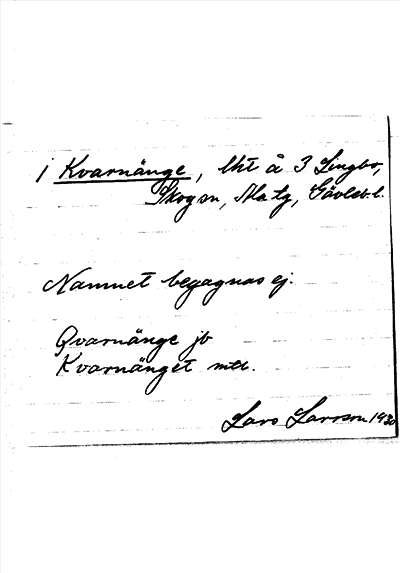 i Kvarnänge, lht å 3 Lingbo,
Skogsn, Ala tg, Gävleb.l.
Namnet begagnas ej.
Qvarnänge jb
Kvarnänget mtl.
Lars Larsson 1930